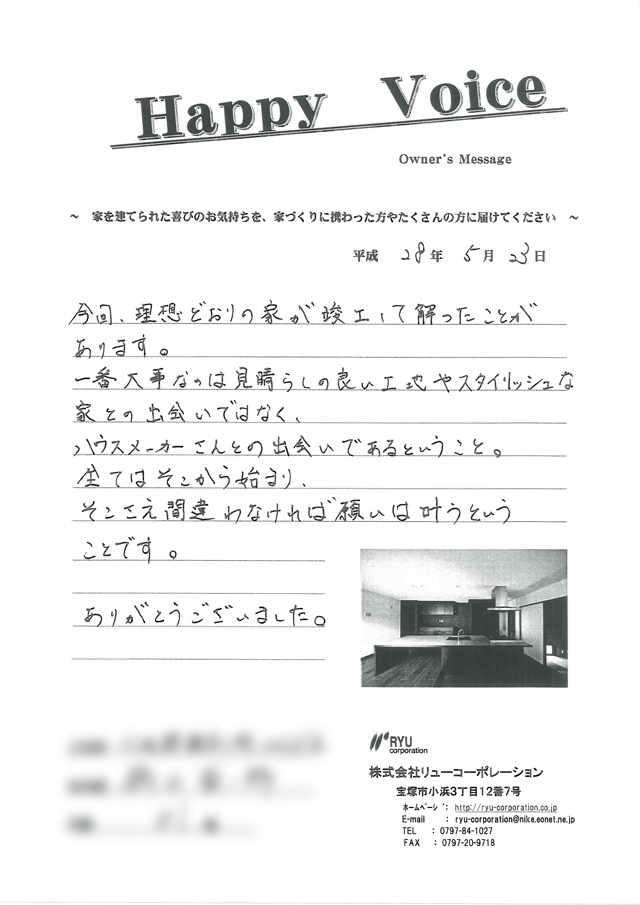 Happy Voice
Owner's Message
~ 家を建てられた喜びのお気持ちを、家づくりに携わった方やたくさんの方に届けてください ~
平成 28年 5月 23日
今回、理想どおりの家が竣工して解ったことが
あります。
一番大事なのは見晴らしの良い土地やスタイリッシュな
家との出会いではなく、
ハウスメーカーさんとの出会いであるということ。
全てはそこから始まり、
そこさえ間違わなければ願いは叶うという
ことです。
ありがとうございました。
RYU
corporation
株式会社リューコーポレーション
宝塚市小浜3丁目12番7号
ホームページ: http://ryu-corporation.co.jp
E-mail : ryu-corporation@nike.eonet.ne.jp
TEL : 0797-84-1027
FAX : 0797-20-9718